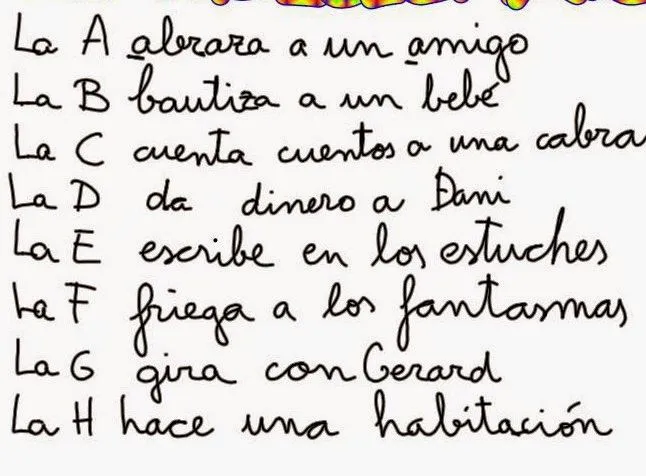 La A abraza a un amigo
La B bautiza a un bebé
La C cuenta cuentos a una cabra
La D da dinero a Dani
La E escribe en los estuches
La F friega a los fantasmas
La G gira con Gerard
La H hace una habitación